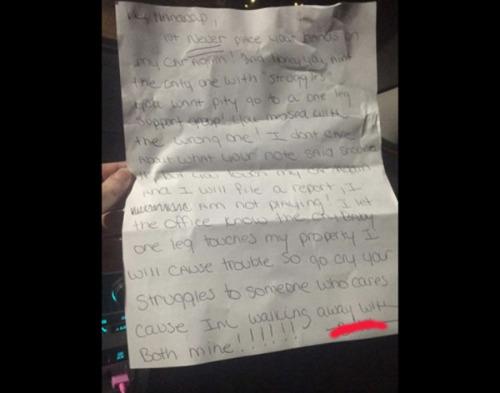 Hey Handicap,
1st Never place your hands on
my car Again! 2nd Honey you aint
the only one with "struggles"
you want pity go to a one leg
support group! You messed with
the wrong one! I don't care
About what your note said shove
it, but you touch my car again
And I will file a report, I
Am not playing! I let
the office know the cry baby
one leg touches my property I
will cause trouble so go cry your
struggles to someone who cares
cause Im walking away with
Both mine!!!!!!!